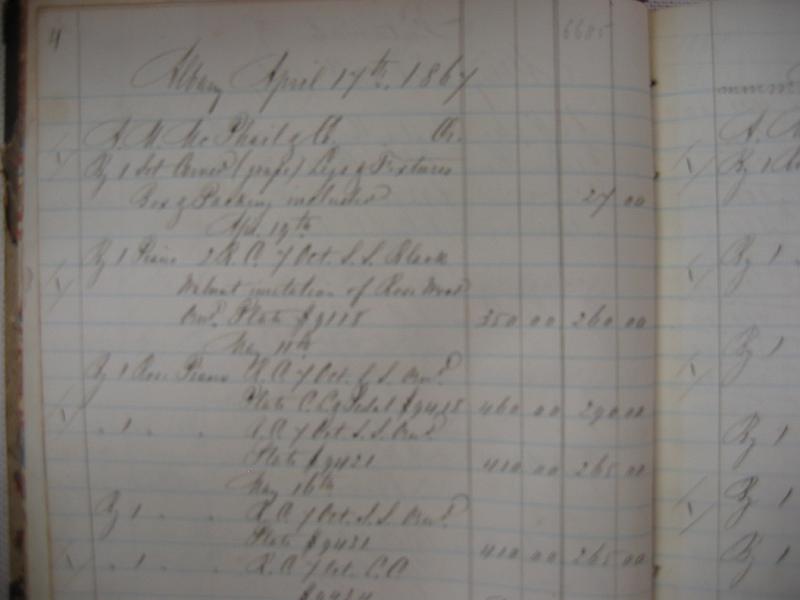 4
6685
Albany April 17th, 1867
A. M. McPhail & Co. Cr.
By 1 Set Carved (grape) Legs & Fixtures
Box & Packing included 27 00
Apr. 19th
By 1 Piano 2 R.C. 7 Oct. S.S. Black
Walnut imitation of Rose Wood
Plate $9118 350 00 260 00
May 11th
By 1 Rose Piano R.C. 7 Oct.
Plate 460 00 290 00
" 1 " " 7 Oct. S.S.
Plate $9421 410 00 265 00
May 16th
By 1 " " R.C. 7 Oct. S.S.
Plate $9431 410 00 265 00
" 1 " " R.C. 7 Oct.
By 1
By 1
By 1
By 1
By 1
By 1